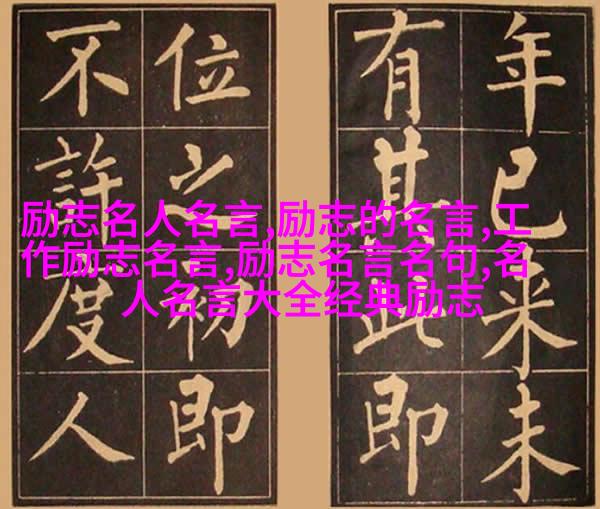 年已来未
有其此即
位之初即
不許度人
励志名人名言,励志的名言,工
作励志名言,励志名言名句,名
人名言大全经典励志